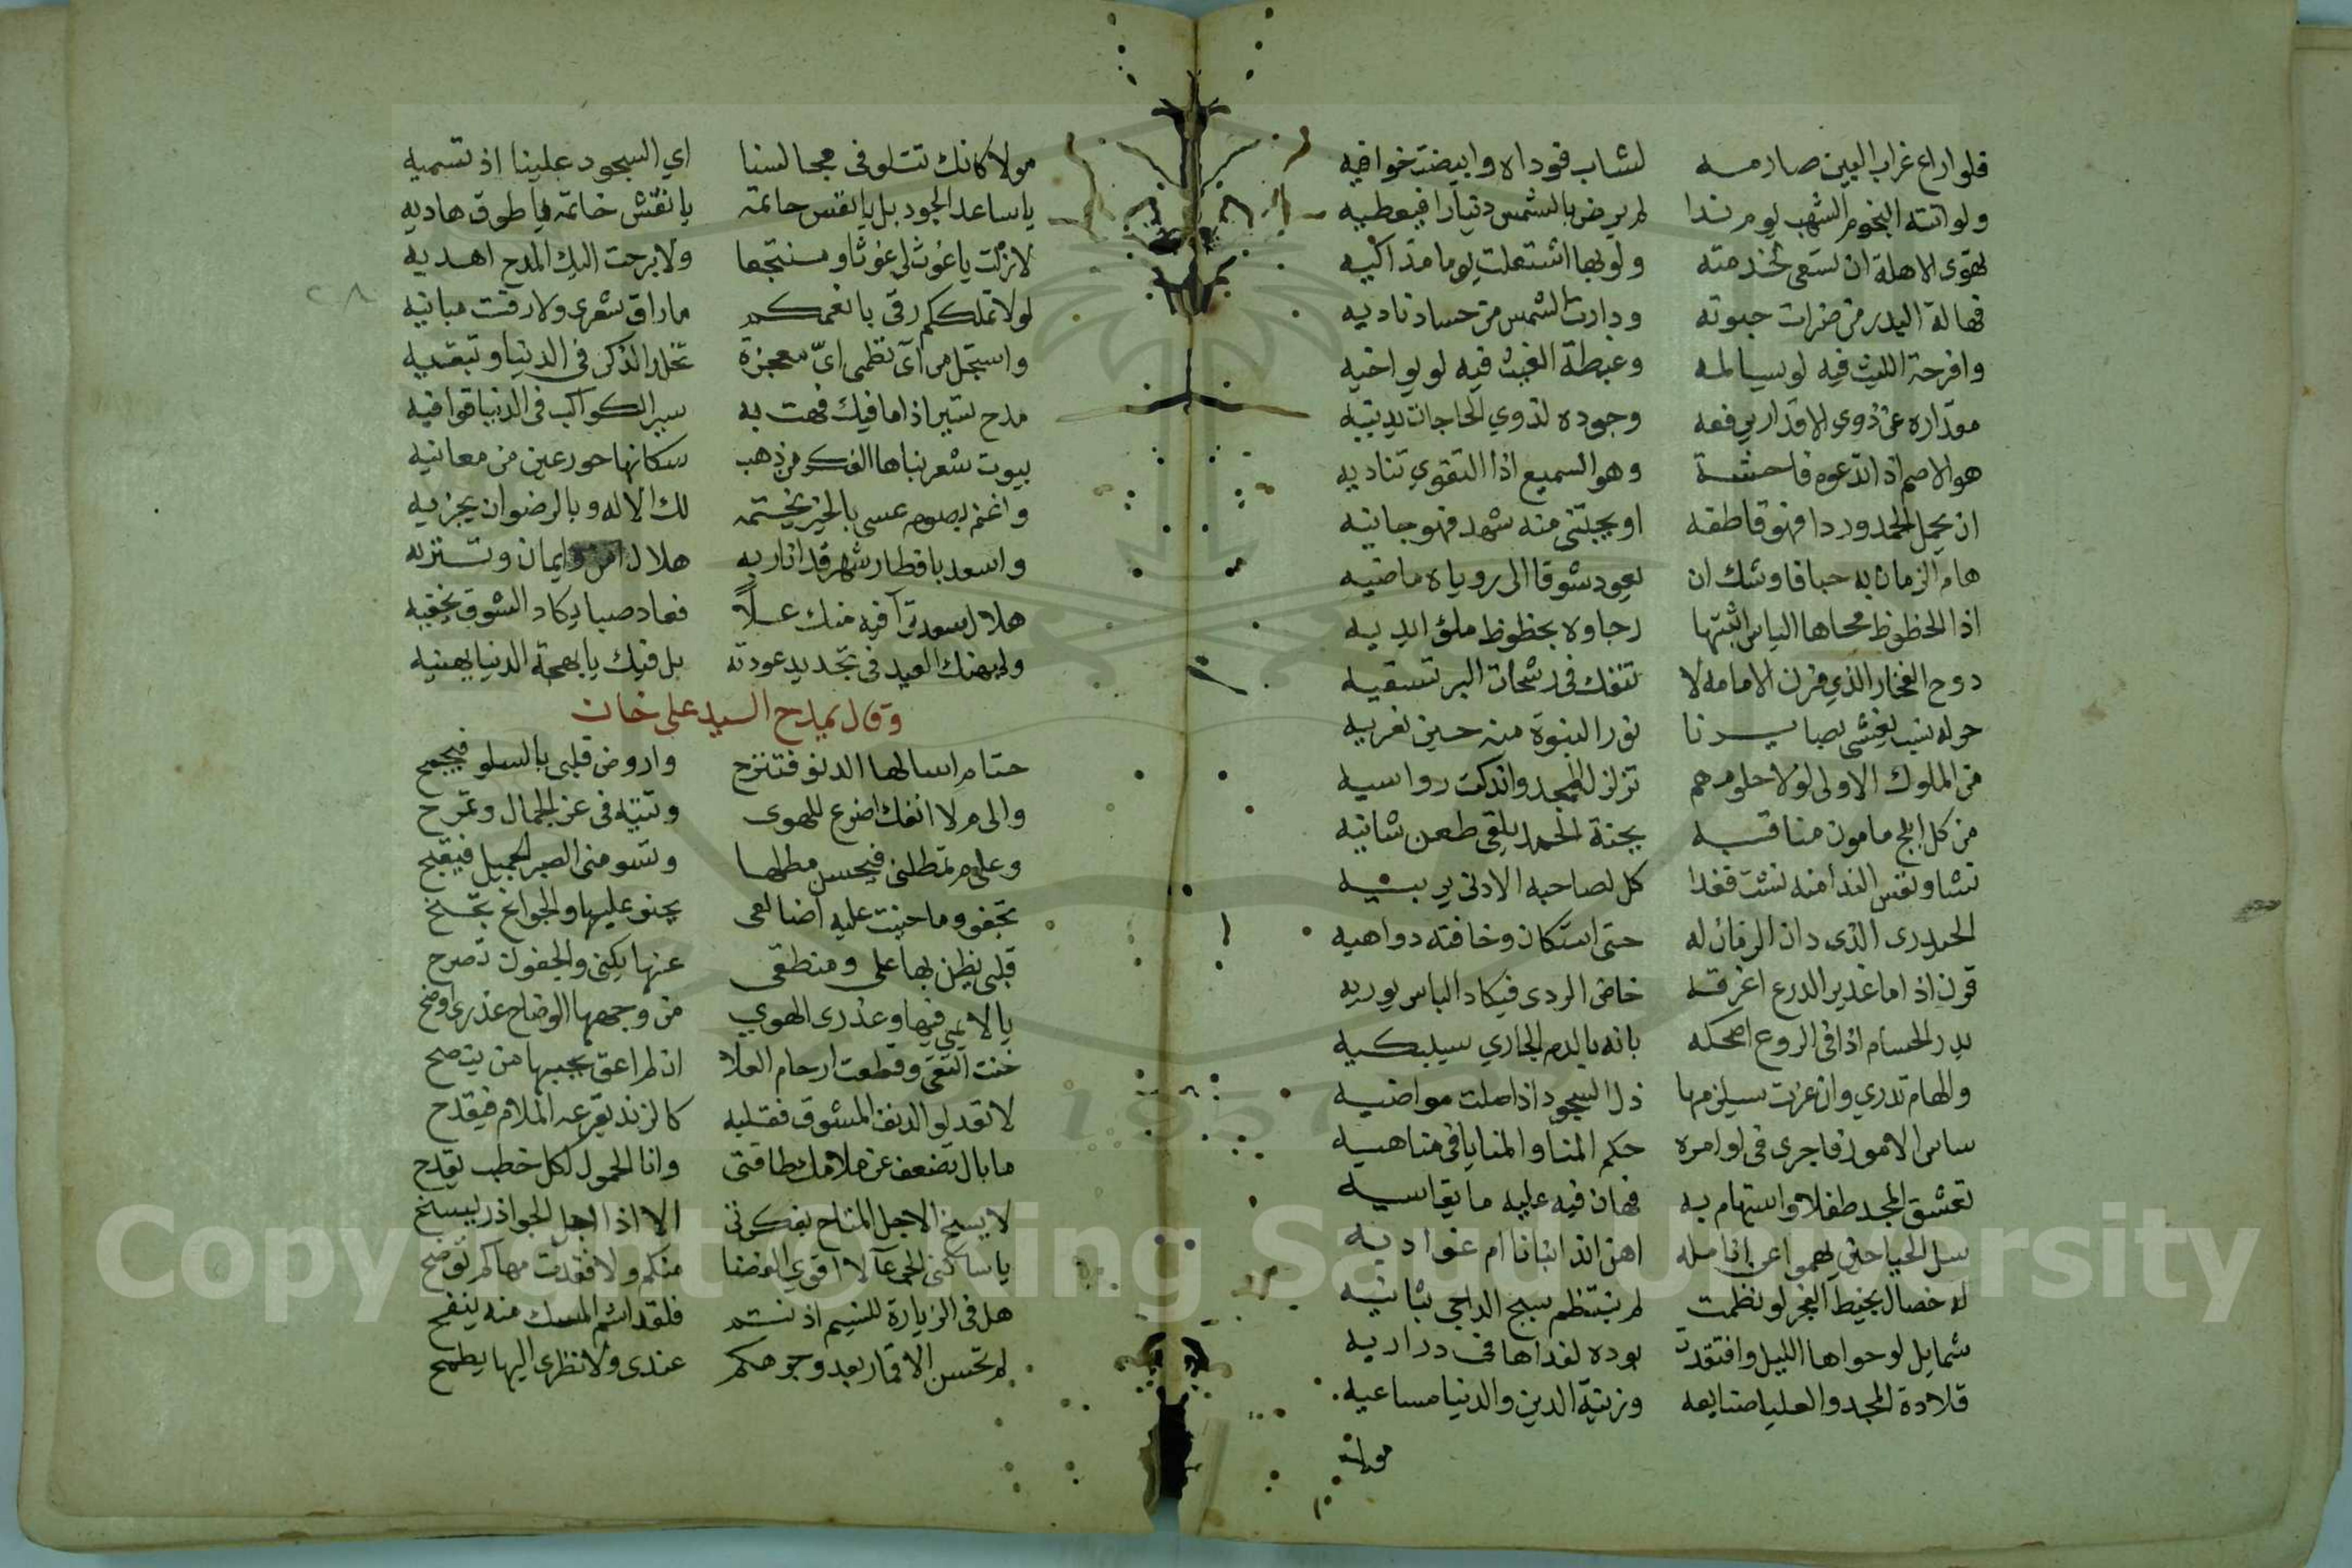 فلو اراع غراب البين صارمه لشاب فوداه وابيضت خوافيه
ولو اتته النجوم الشهب يوم ندا لم يرض بالشمس دنيارا فيعطيه
تهوى الاهلة ان تسعى لخدمته ولو بها اشتعلت يوما مذاكيه
فهالة البدر من ضرات حبوته ودارت الشمس من حساد ناديه
وافرحة الليث فيه لو يسالمه وغبطة الغيث فيه لو يواخيه
مقداره عن ذوي الاقدار يرفعه وجوده لذوي الحاجات يدنيه
هو الاصم اذا تدعوه فاحشة وهو السميع اذا التقوي تناديه
ان يحمل الحمد وردا فهو قاطفه او يجتنى منه شهد فهو جانيه
هام الزمان به حبا فاوشك ان يعود شوقا الى روياه ماضيه
اذا الحظوظ محاها الياس اثبتها رجاوه بحظوظ ملؤ ايديه
دوح الفخار الذي مزن الامامة لا تنفك في رشحات البر تسقيه
حوله نسب يغشى بصايرنا نور النبوة منه حين نغريه
من الملوك الاولى لولا حلومهم تزلزل المجد واندكت رواسيه
من كل ابلج مامون مناقبه بجنة الحمد يلقى طعن شانيه
نشا ونفس الندا منه نشت فغدا كل لصاحبه الادنى يربيه
الحيدرى الذى دان الزمان له حتى استكان وخافته دواهيه
قرن اذا ما غدير الدرع اغرقه خاض الردى فيكاد الباس يوريه
يدر الحسام اذا في الروع اضحكه بانه بالدم الجاري سيبكيه
والهام تدري وان عزت سيلزمها ذل السجود اذا صلت مواضيه
ساس الامور فاجرى في اوامره حكم المنا والمنايا في مناهيه
تعشق المجد طفلا واستهام به فهان فيه عليه ما يقاسيه
سل الحيا حين يهمى عن انامله اهن اندا بنانا ام غواديه
له خصال بخيط الفجر لو نظمت لم ينتظم سبج الداجي بثانيه
شمايل لو حواها الليل وافتقدت بوده لفداها في دراريه
قلادة المجد والعليا صنايعه وزينة الدين والدنيا مساعيه
مولا
مولا كانك تتلو في مجالسنا اي السجود علينا اذ تسميه
يا ساعد الجود بل يا نفس حاتمه يا نقش خاتمه يا طوق هاديه
لا زلت يا غوث لي غوثا ومنتجعا ولا برحت اليك المدح اهديه
لولا تملككم رقى بانعمكم ما راق شعرى ولا رقت مبانيه
واستجل من آى نظمى اىّ معجزة تخلد الذكر في الدنيا وتبقيه
مدح تسير اذا ما فيك فهت به سير الكواكب في الدنيا قوافيه
بيوت شعر بناها الفكر من ذهب سكانها حور عين من معانيه
واغنم بصوم عسى بالخير يختمه لك الاله وبالرضوان يجزيه
واسعد باقطار شهر قد انار به هلال امن وايمان وتنزيه
هلال سعد ترآ فيه منك علاً فعاد صبا يكاد الشوق يخفيه
وليهنك العيد في تجديد عودته بل فيك يا بهجة الدنيا يهنيه
وقال يمدح السيد على خان
حتام اسالها الدنو فتنزح واروض قلبى بالسلو فيجمح
والى م لا انفك اضرع للهوى وتتيه في عز الجمال وتمرح
وعلى م تمطلنى فيحسن مطلها وتسومنى الصبر الجميل فيقبح
تجفو وما حنيت عليه اضالعى يحنو عليها والجوانح تجنح
قلبى يظن بها على ومنطقى عنها يكنى والجفون تصرح
يا لايمي فيها وعذرى الهوي من وجهها الوضاح عذرى اوضح
خنت التقى وقطعت ارحام العلا ان لم اعق بحبها من ينصح
لا تعذلو الدنف المشوق فقلبه كالزند يقرعه الملام فيقدح
ما بال تضعف عن ملامك طاقتى وانا الحمول لكل خطب يفدح
لا يسنح الاجل المتاح بفكرتى الا اذا اجل الجواذر يسنح
يا ساكنى الجرعآ لا اقوى الفضا منكم ولا فقدت مهاكم توضح
هل في الزيارة للنسيم اذنتم فلقد اشم المسك منه ينفح
لم تحسن الاقمار بعد وجوهكم عندى ولا نظرى اليها يطمح